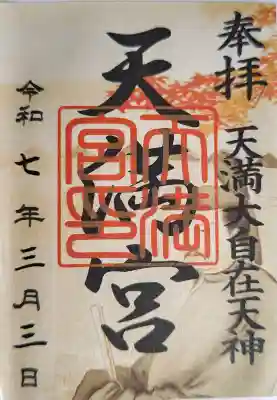 奉拝
天満大自在天神
天満宮
天満宮印
令和七年三月三日